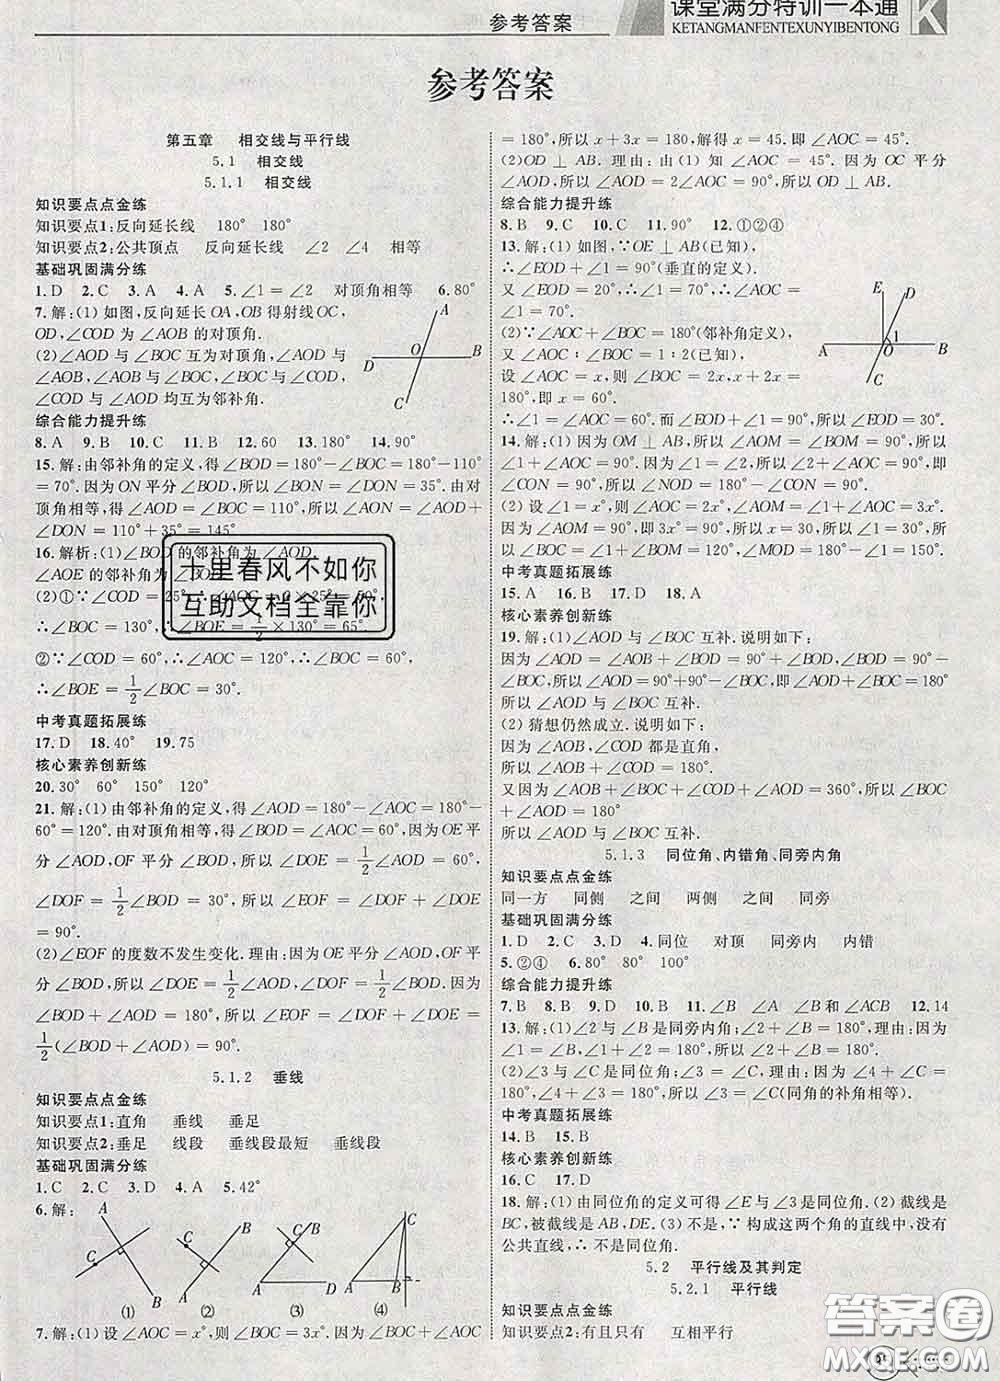 参考答案
课堂满分特训一本通
KETANGMANFENTEXUNYIBENTONG
K
参考答案
第五章 相交线与平行线
5.1 相交线
5.1.1 相交线
知识要点点金练
知识要点1:反向延长线 180° 180°
知识要点2:公共顶点 反向延长线 ∠2 ∠4 相等
基础巩固满分练
1.D 2.C 3.A 4.A 5.∠1=∠2 对顶角相等 6.80°
7.解:(1)如图,反向延长OA,OB得射线OC,
OD,∠COD为∠AOB的对顶角.
(2)∠AOD与∠BOC互为对顶角,∠AOD与
∠AOB,∠AOB与∠BOC,∠BOC与∠COD,
∠COD与∠AOD均互为邻补角.
A
D O B
C
综合能力提升练
8.A 9.B 10.C 11.B 12.60 13.180° 14.90°
15.解:由邻补角的定义,得∠BOD=180°-∠BOC=180°-110°
=70°.因为ON平分∠BOD,所以∠BON=∠DON=35°.由对
顶角相等,得∠AOD=∠BOC=110°,所以∠AON=∠AOD+
∠DON=110°+35°=145°.
16.解析:(1)∠BOD的邻补角为∠AOD,
∠AOE的邻补角为∠BOE
∴∠BOC=130°,∴∠BOE=1/2×130°=65°
②∵∠COD=60°,∴∠AOC=120°,∴∠BOC=60°,
∴∠BOE=1/2∠BOC=30°.
十里春风不如你
互助文档全靠你
中考真题拓展练
17.D 18.40° 19.75
核心素养创新练
20.30° 60° 150° 120°
21.解:(1)由邻补角的定义,得∠AOD=180°-∠AOC=180°-
60°=120°.由对顶角相等,得∠BOD=∠AOC=60°,因为OE平
分∠AOD,OF平分∠BOD,所以∠DOE=1/2∠AOD=60°,
∠DOF=1/2∠BOD=30°,所以∠EOF=∠DOF+∠DOE
=90°.
(2)∠EOF的度数不发生变化.理由:因为OE平分∠AOD,OF平
分∠BOD,所以∠DOE=1/2∠AOD,∠DOF=1/2∠BOD,因为
∠BOD+∠AOD=180°,所以∠EOF=∠DOF+∠DOE=
1/2(∠BOD+∠AOD)=90°.
5.1.2 垂线
知识要点点金练
知识要点1:直角 垂线 垂足
知识要点2:垂足 线段 垂线段最短 垂线段
基础巩固满分练
1.C 2.C 3.D 4.A 5.42°
6.解:
A C B ①
C A B ②
C B A D ③
C A B ④
7.解:(1)设∠AOC=x°,则∠BOC=3x°,因为∠AOC+∠BOC
=180°,所以x+3x=180,解得x=45.即∠AOC=45°.
(2)OD⊥AB.理由:由(1)知∠AOC=45°.因为OC平分
∠AOD,所以∠AOD=2∠AOC=90°,所以OD⊥AB.
综合能力提升练
8.B 9.C 10.C 11.90° 12.①②④
13.解:(1)如图,∵OE⊥AB(已知),
∴∠EOD+∠1=90°(垂直的定义).
又∠EOD=20°,∴∠1=70°,∴∠AOC=
∠1=70°.
(2)∵∠AOC+∠BOC=180°(邻补角定义),
又∵∠AOC:∠BOC=1:2(已知),
设∠AOC=x,则∠BOC=2x,x+2x=
180°,即x=60°.
∴∠1=∠AOC=60°.而∠EOD+∠1=90°,所以∠EOD=30°.
E D
A O 1 B
C
14.解:(1)因为OM⊥AB,所以∠AOM=∠BOM=90°,所以∠1
+∠AOC=90°.因为∠1=∠2,所以∠2+∠AOC=90°,即
∠CON=90°,所以∠NOD=180°-∠CON=90°.
(2)设∠1=x°,则∠AOC=2x°,所以∠AOM=∠1+∠AOC=
3x°,因为∠AOM=90°,即3x°=90°,所以x=30,所以∠1=30°,所
以∠AOC=60°,所以∠BOD=∠AOC=60°.
中考真题拓展练
15.A 16.B 17.D 18.A
核心素养创新练
19.解:(1)∠AOD与∠BOC互补.说明如下:
因为∠AOD=∠AOB+∠BOD=90°+∠BOD,∠BOC=90°-
∠BOD,所以∠AOD=90°+90°-∠BOC,即∠AOD+∠BOC=180°
所以∠AOD与∠BOC互补.
(2)猜想仍然成立.说明如下:
因为∠AOB,∠COD都是直角,
所以∠AOB+∠COD=180°.
又因为∠AOB+∠BOC+∠COD+∠AOD=360°,所以∠BOC
+∠AOD=180°
所以∠AOD与∠BOC互补.
5.1.3 同位角、内错角、同旁内角
知识要点点金练
同一方 同侧 之间 两侧 之间 同旁
基础巩固满分练
1.D 2.C 3.D 4.同位 对顶 同旁内 内错
5.②④ 6.80° 80° 100°
综合能力提升练
7.B 8.B 9.D 10.D 11.∠B ∠A ∠B和∠ACB 12.14
13.解:(1)∠2与∠5是同旁内角;∠2+∠5=180°,理由:因为
∠5=∠1,∠2+∠1=180°,所以∠2+∠5=180°.
(2)∠3与∠C是同位角;∠3=∠C.理由:因为∠4+∠C=
180°,∠3+∠4=180°,所以∠3=∠C(同角的补角相等).
中考真题拓展练
14.B 15.B
核心素养创新练
16.C 17.D
18.解:(1)由同位角的定义可得∠E与∠3是同位角.(2)截线是
BC,被截线是AB,DE.(3)不是,∵构成这两个角的直线中,没有
公共直线,∴不是同位角.
5.2 平行线及其判定
5.2.1 平行线
知识要点点金练
知识要点2:有且只有 互相平行
答案圈
MXQE.COM